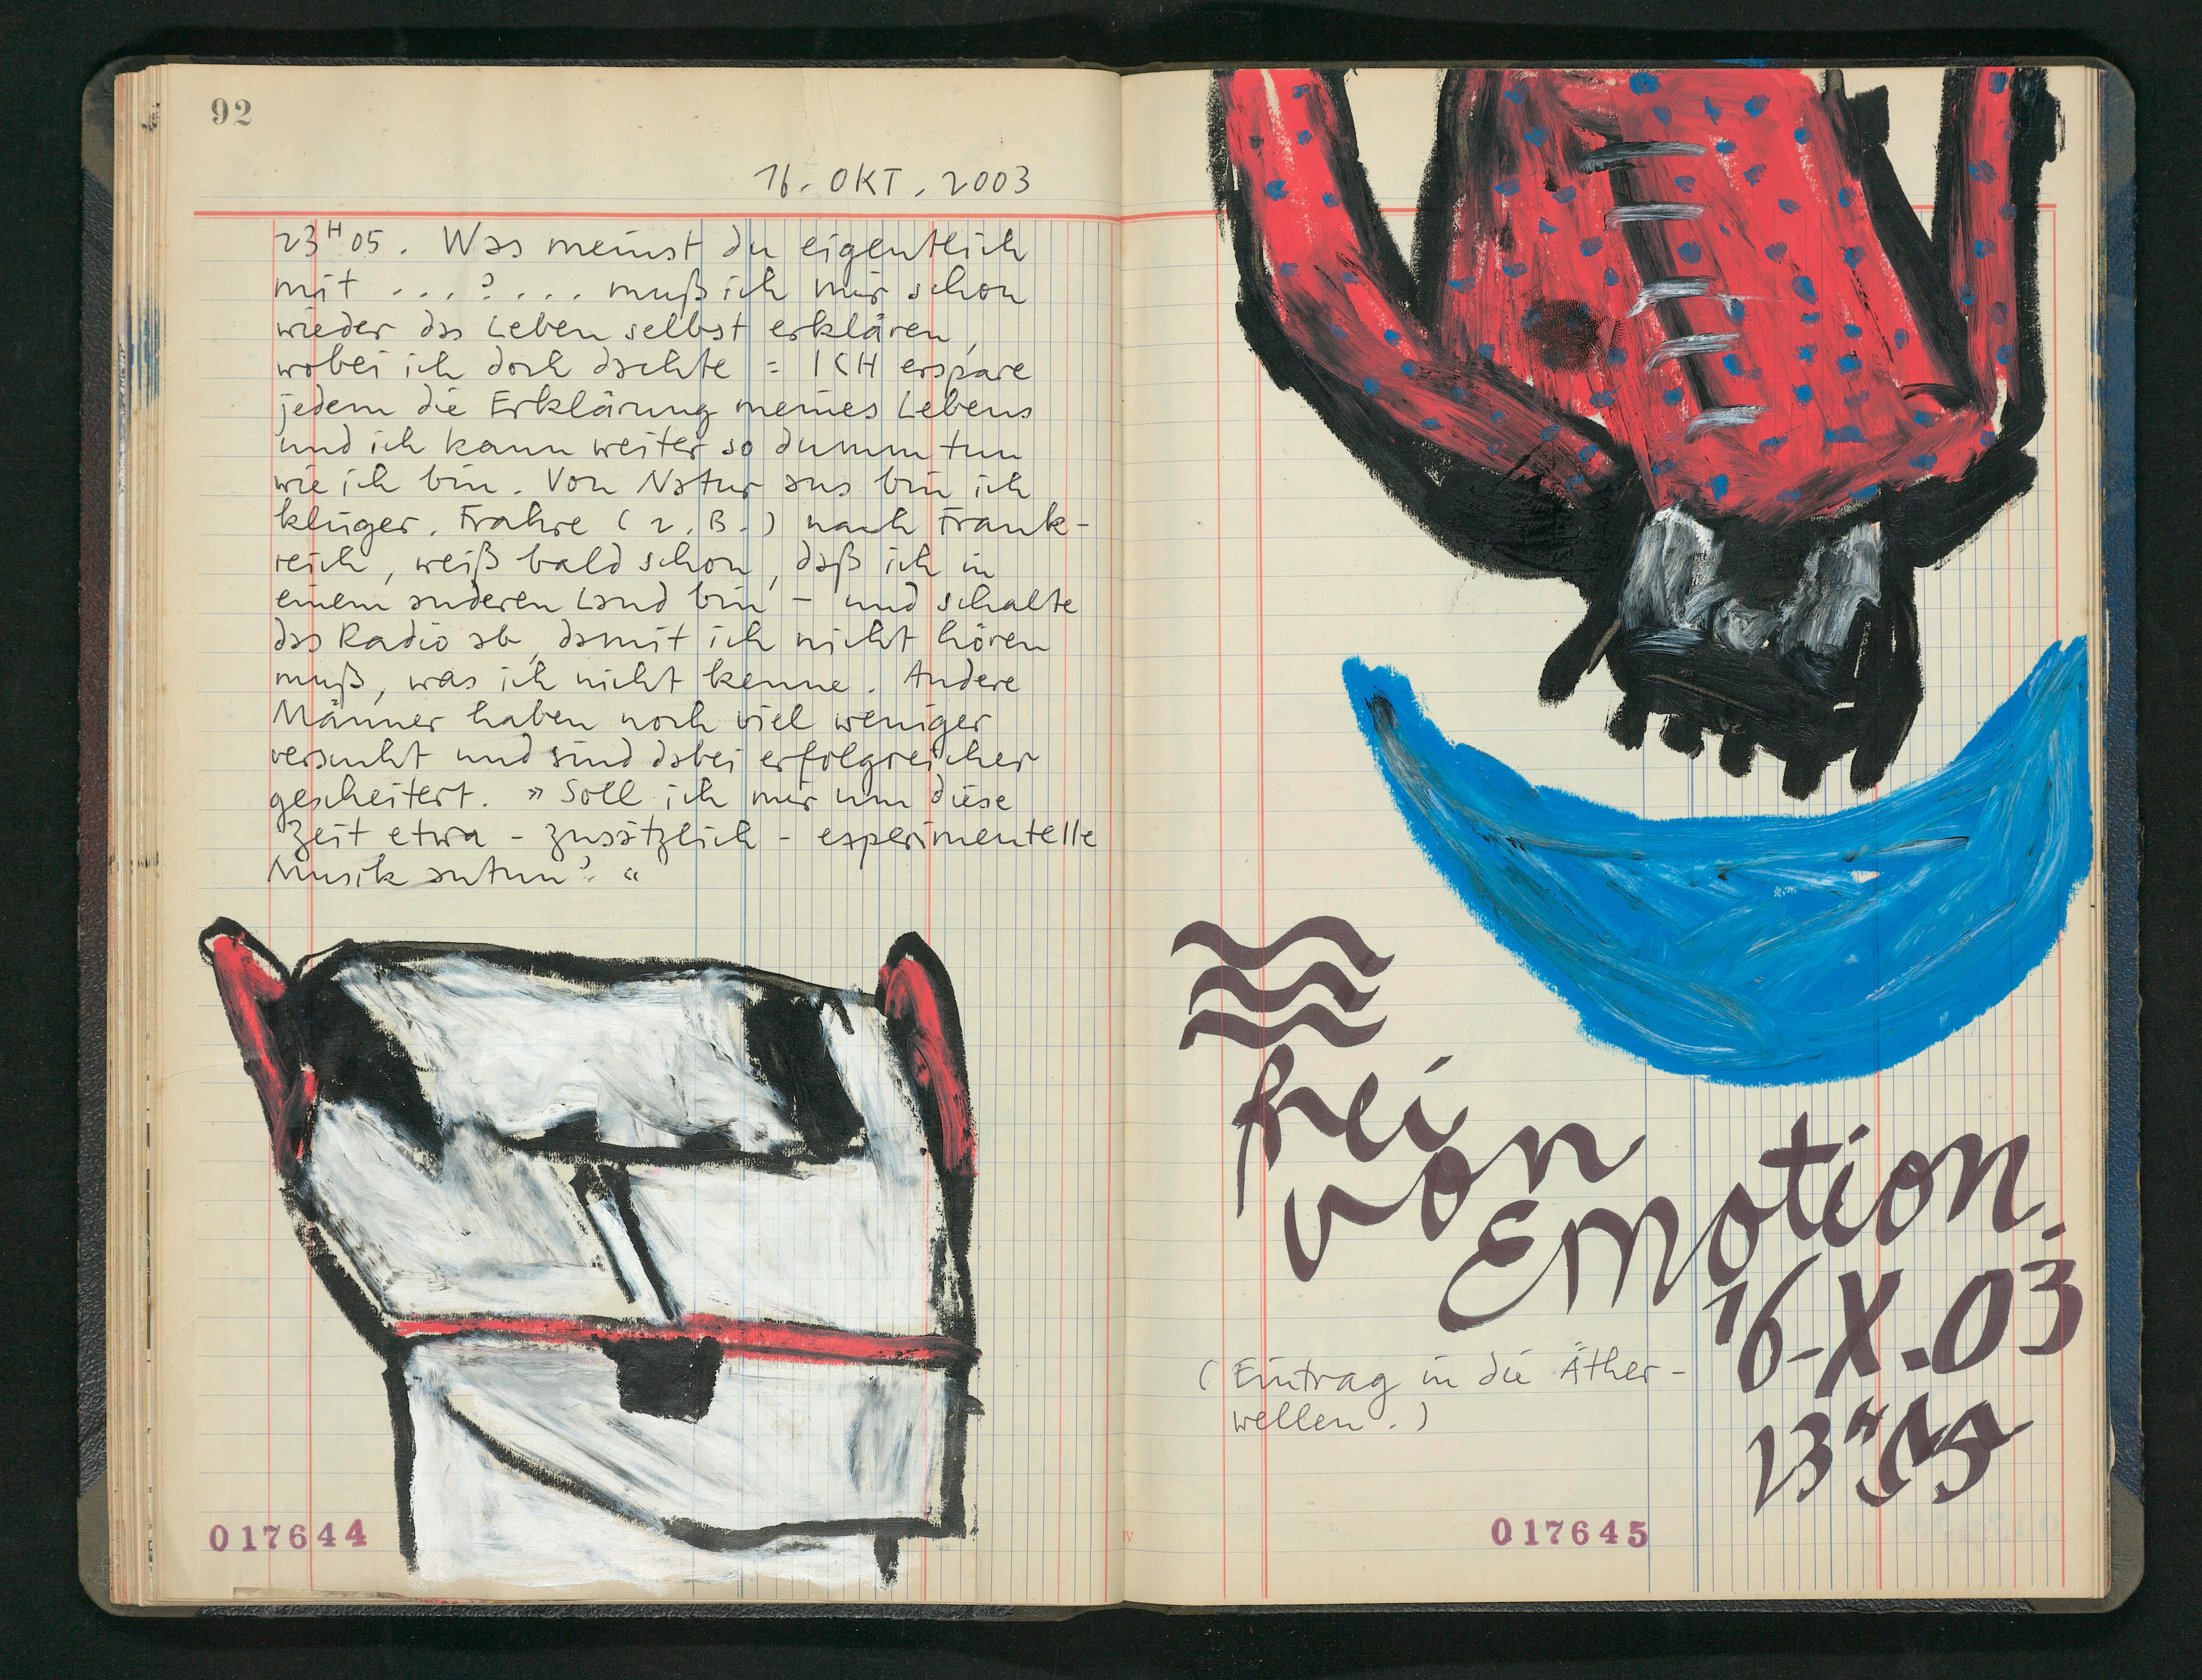 92
16. OKT. 2003
23H05. Was meinst du eigentlich
mit ...?... muß ich mir schon
wieder das Leben selbst erklären,
wobei ich doch dachte = ICH erspare
jedem die Erklärung meines Lebens
und ich kann weiter so dumm tun
wie ich bin. Von Natur aus bin ich
klüger. Frahre (z.B.) nach Frank-
reich, weiß bald schon, daß ich in
einem anderen Land bin - und schalte
das Radio ab, damit ich nicht hören
muß, was ich nicht kenne. Andere
Männer haben noch viel weniger
versucht und sind dabei erfolgreicher
gescheitert. »Soll ich mir um diese
Zeit etwa - zusätzlich - experimentelle
Musik antun?«
017644
frei
von
Emotion.
16-X-03
23H
(Eintrag in die Äther-
wellen.)
017645